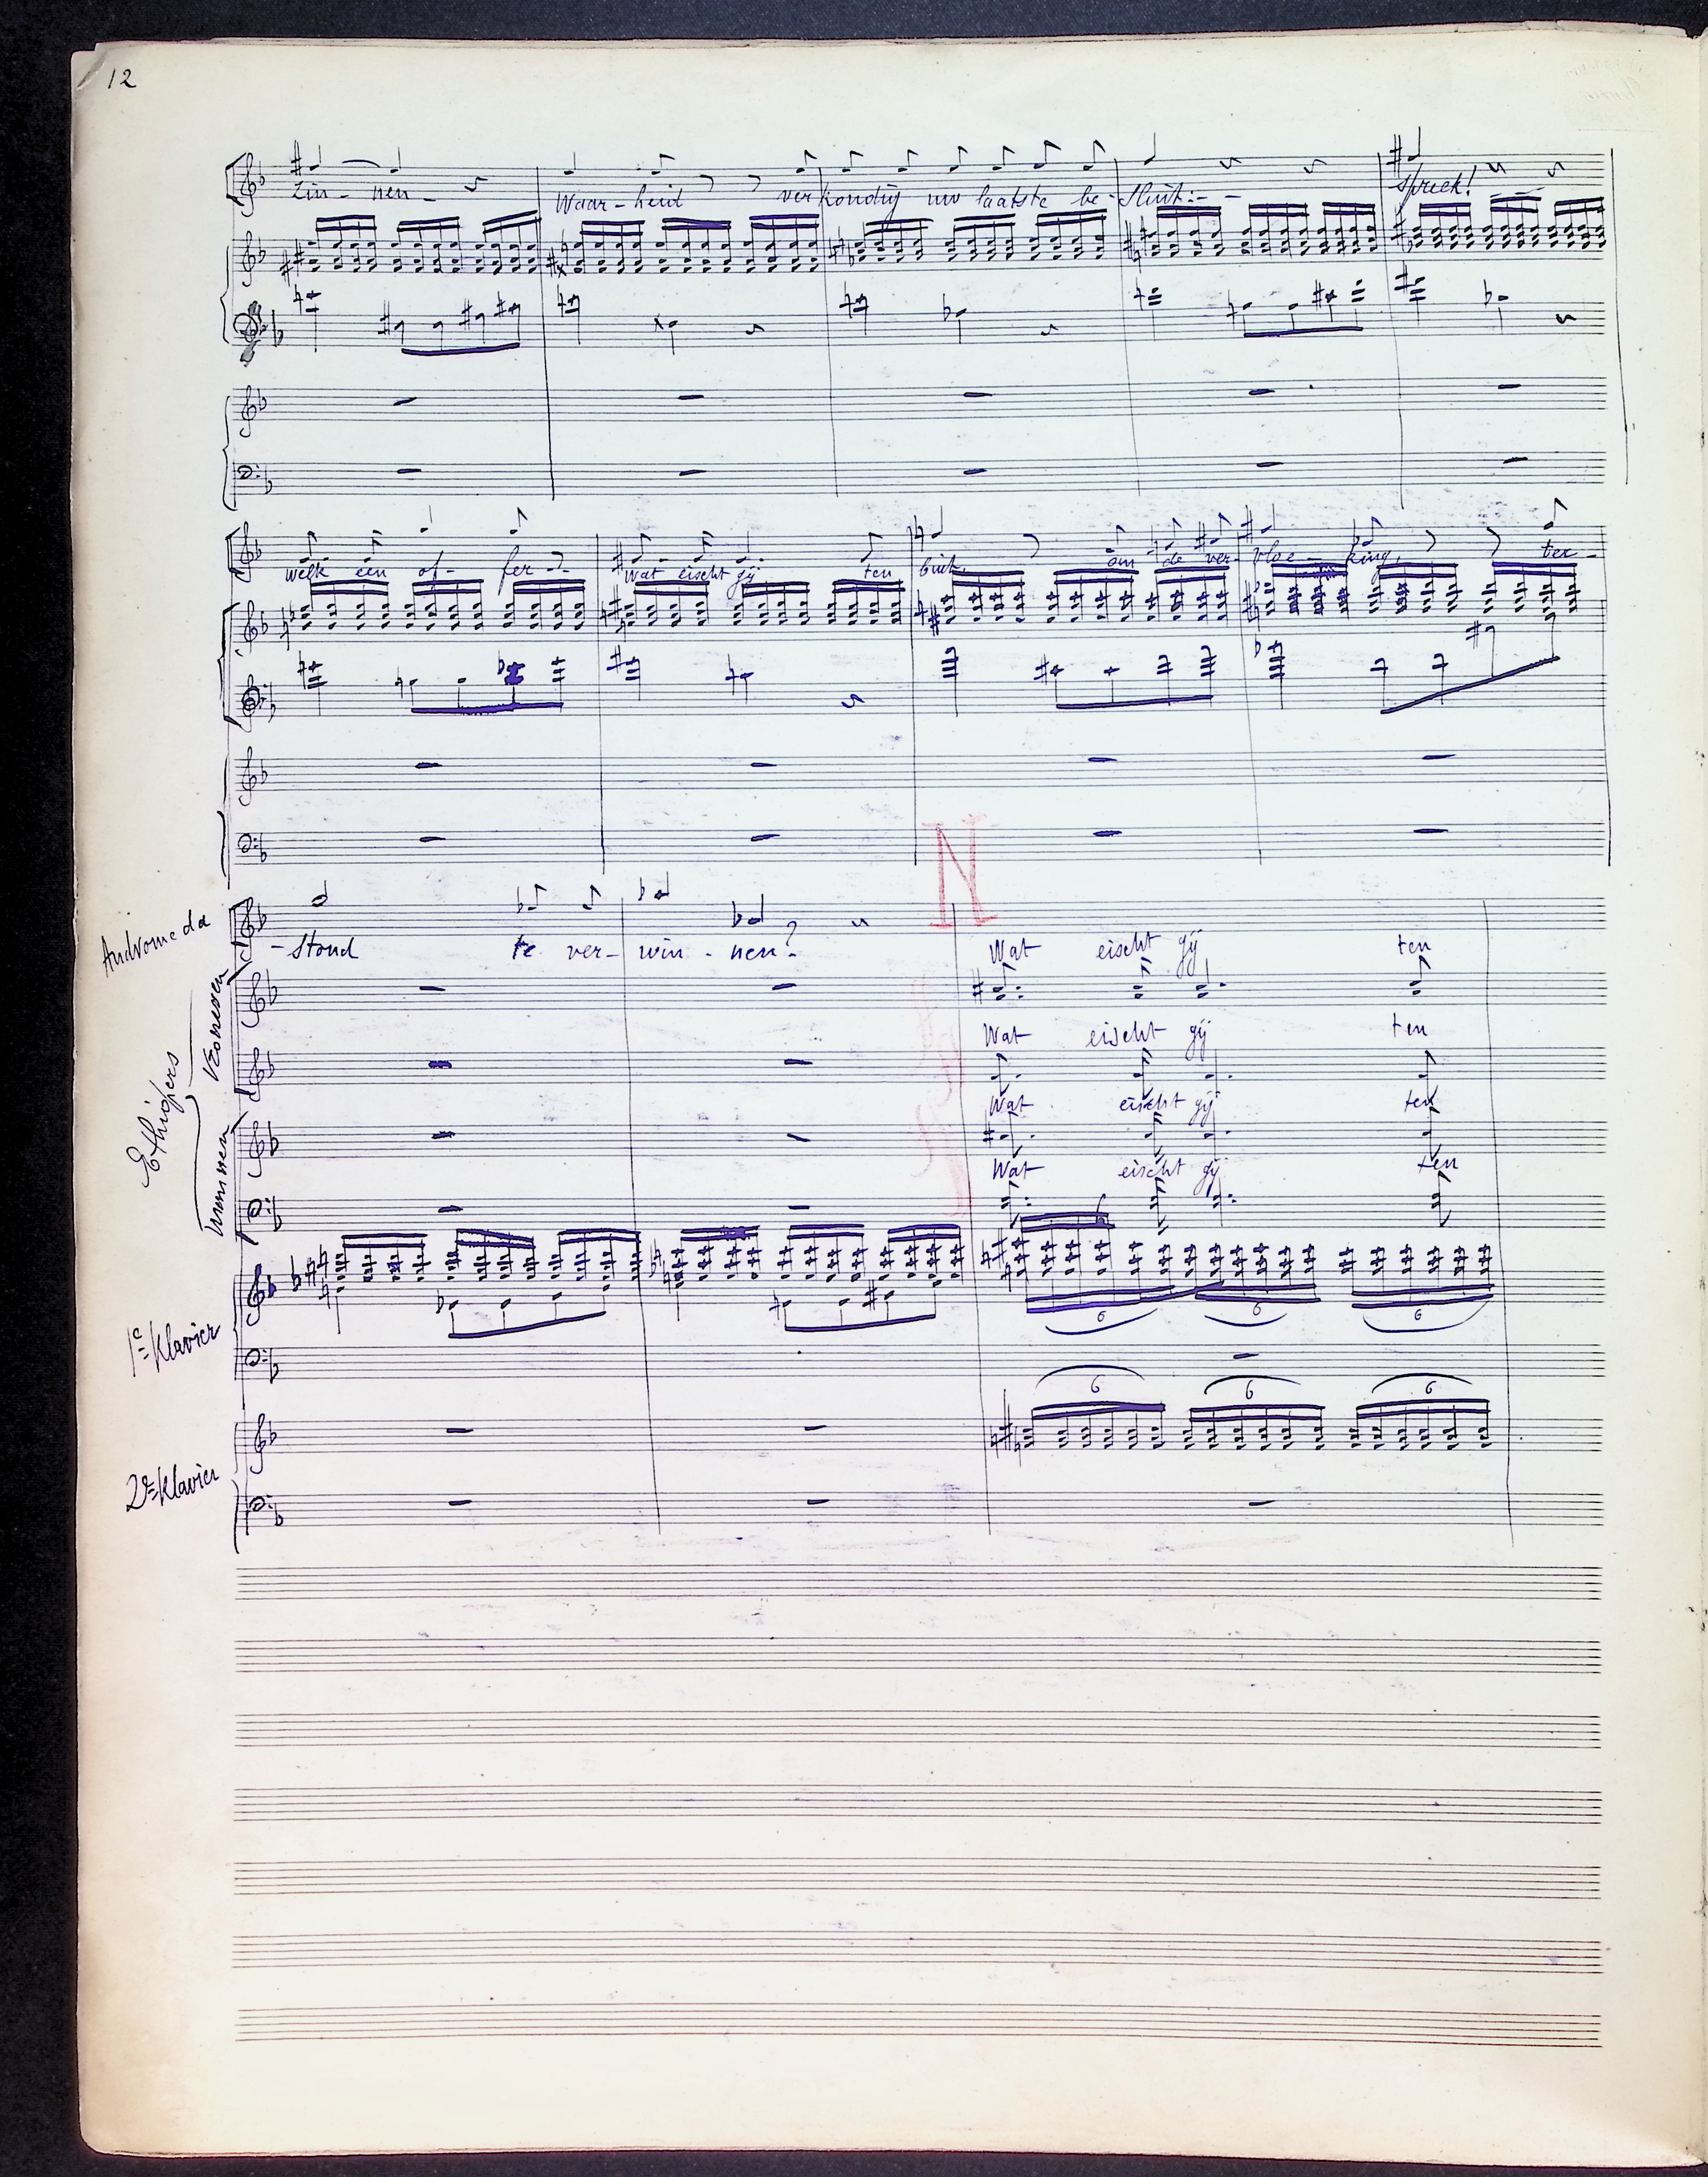 12
Zin- nen- Waar-heid verkondig uw laatste be-sluit:- - spreek!
welk een of- fer- wat eischt gij ten buit. om de ver- vloe- king, ter-
N
Andromeda
-stond te ver- win- nen?
Wat eischt gij ten
Ethiopers
Vrouwen
Wat eischt gij ten
Wat eischt gij ten
Mannen
Wat eischt gij ten
6 6 6
1e Klavier
6 6 6
2e Klavier